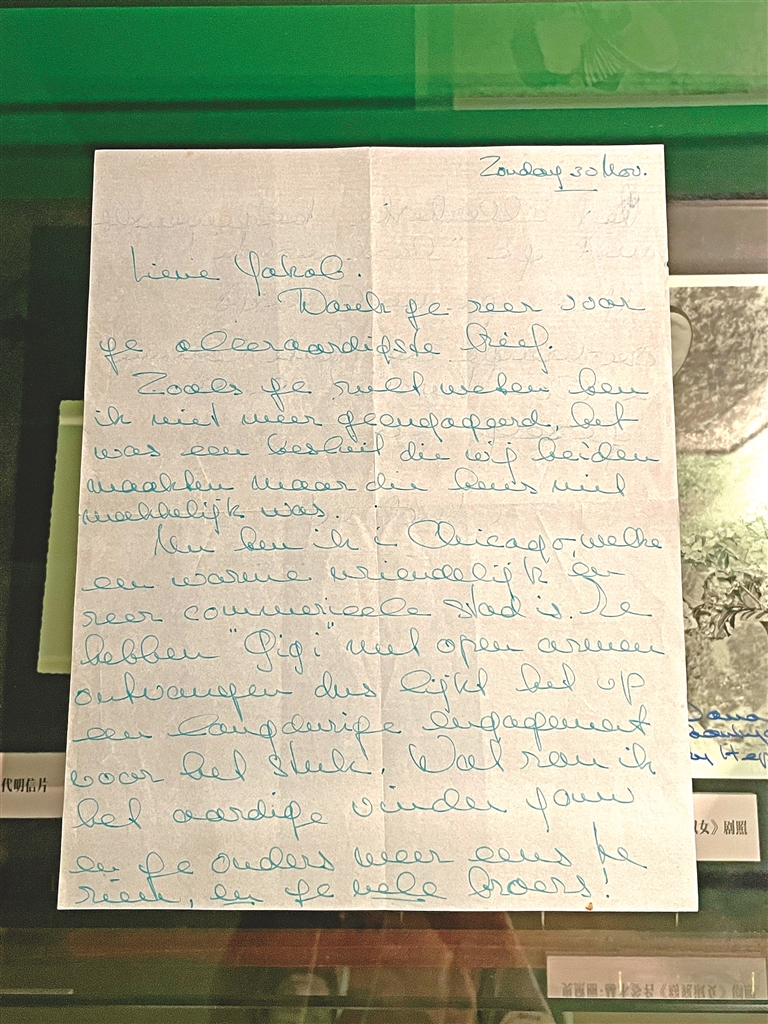 Zondag 30 Nov.
Lieve Jakob.
Dank je zeer voor
je alleraardigste brief.
Zoals je zult weten ben
ik niet meer geengageerd, het
was een besluit die wij beiden
maakten maar die heus niet
makkelijk was.
Nu ben ik i Chicago, welke
een warme vriendelijk en
zeer commercieele stad is. Ze
hebben "Gigi" met open armen
ontvangen dus lijkt het op
een langdurige engagement
voor het stuk. Wat zou ik
het aardige vinden jouw
en je ouders weer eens te
zien, en je vele broers!
代明信片
女》剧照